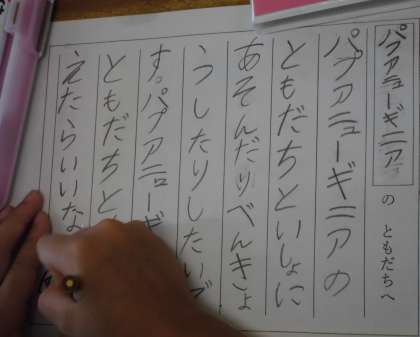 パプアニューギニア の ともだちへ
パプアニューギニアの
ともだちといしょに
あそんだりべんきょ
うしたりしたいで
す。パプアニューギ
ともだちと
えたらいいな